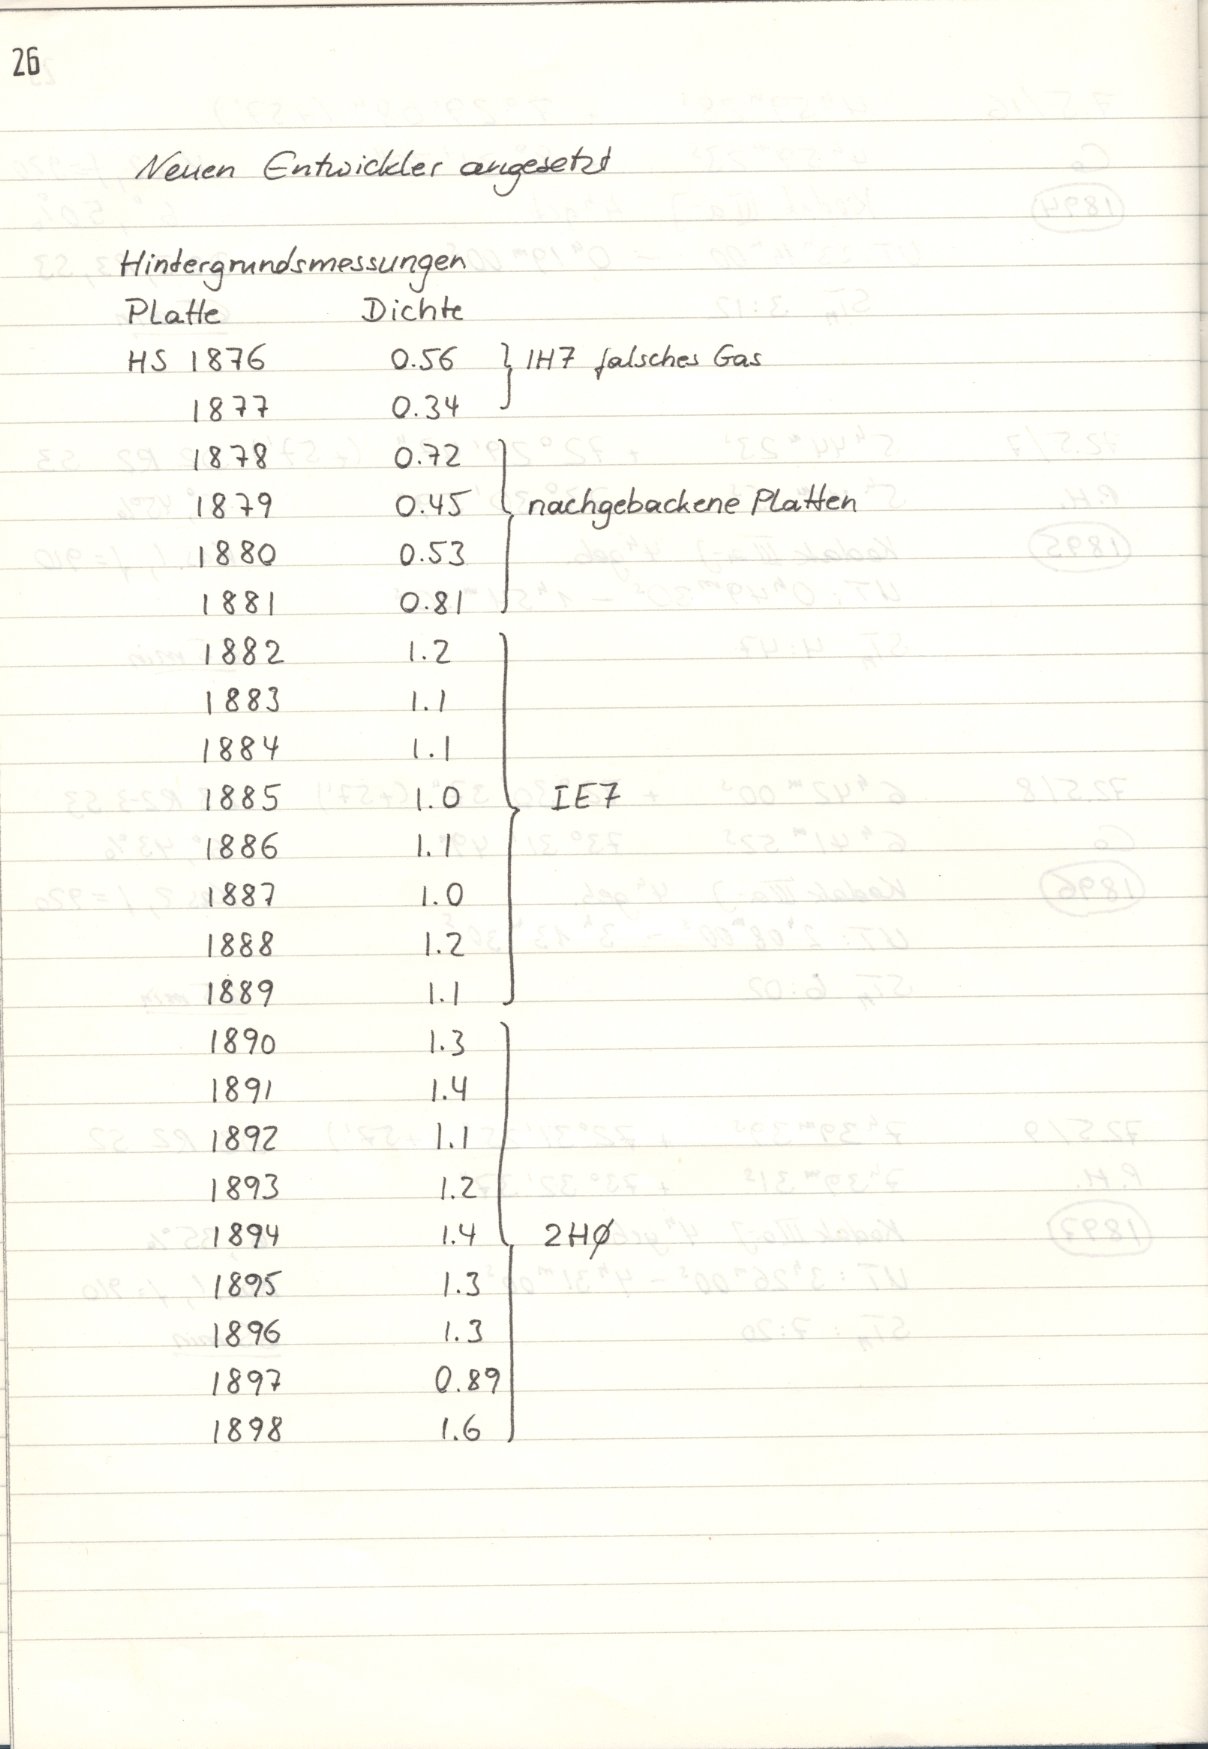 26
Neuen Entwickler angesetzt
Hintergrundsmessungen
Platte Dichte
HS 1876 0.56 } 1H7 falsches Gas
1877 0.34
1878 0.72
1879 0.45 } nachgebackene Platten
1880 0.53
1881 0.81
1882 1.2
1883 1.1
1884 1.1
1885 1.0 } IE7
1886 1.1
1887 1.0
1888 1.2
1889 1.1
1890 1.3
1891 1.4
1892 1.1
1893 1.2
1894 1.4 } 2HØ
1895 1.3
1896 1.3
1897 0.89
1898 1.6